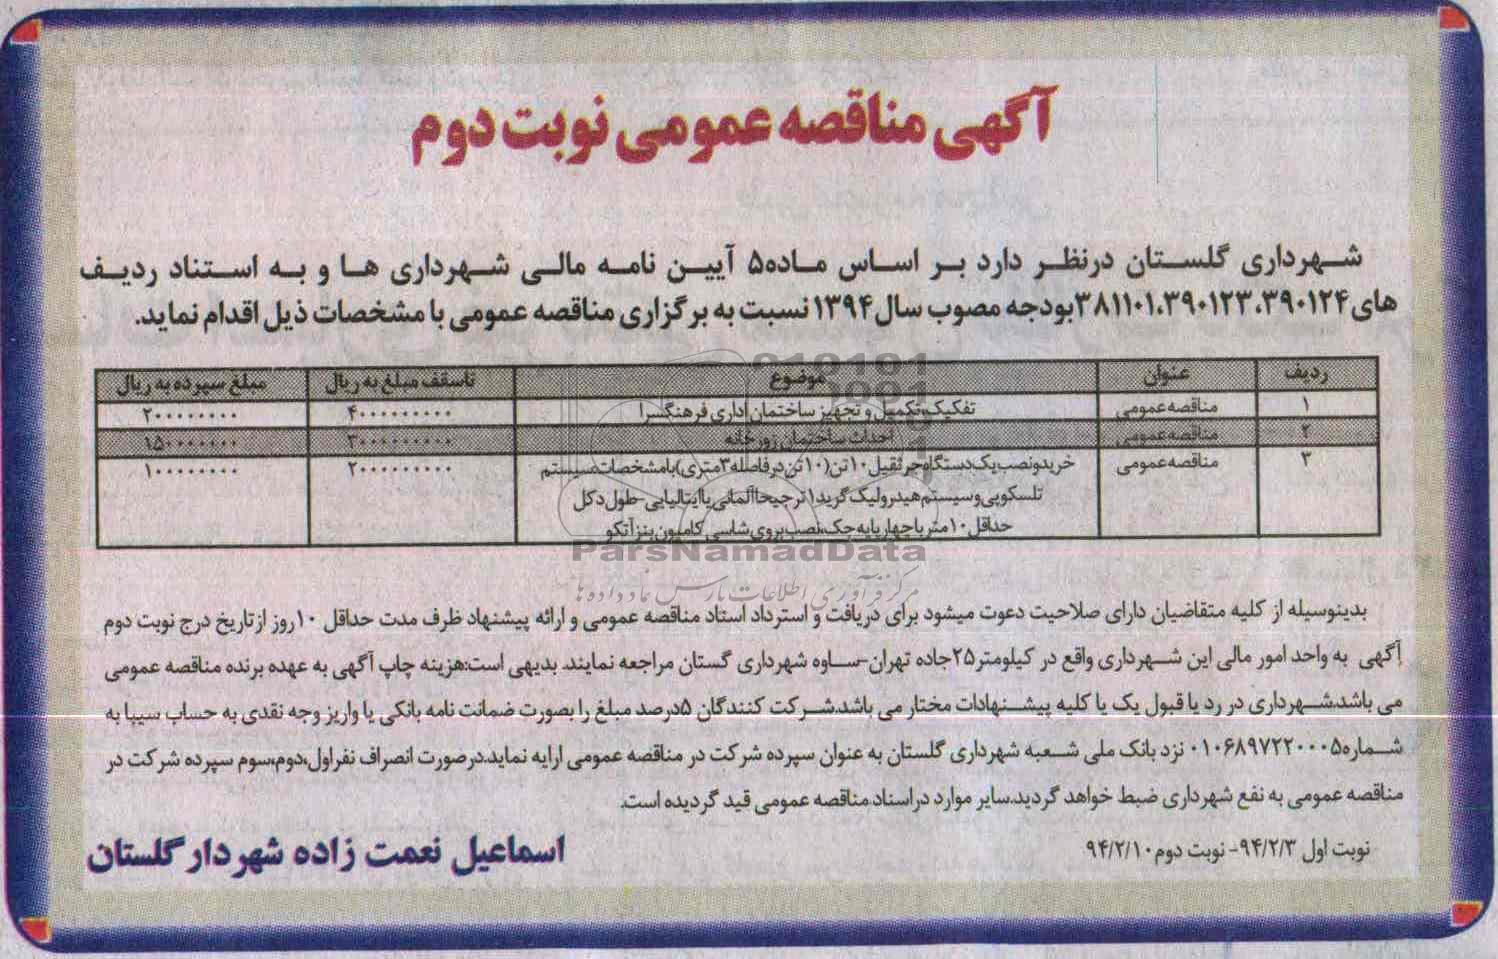 آگهی مناقصه عمومی نوبت دوم
شهرداری گلستان درنظر دارد بر اساس ماده۵ آیین نامه مالی شهرداری ها و به استناد ردیف
های۳۸۱۱۰۱،۳۹۰۱۲۳،۳۹۰۱۲۴بودجه مصوب سال۱۳۹۴ نسبت به برگزاری مناقصه عمومی با مشخصات ذیل اقدام نماید.
ردیف عنوان موضوع تاسقف مبلغ به ریال مبلغ سپرده به ریال
۱ مناقصه عمومی تفکیک،تکمیل و تجهیز ساختمان اداری فرهنگسرا ۴۰۰۰۰۰۰۰۰۰ ۲۰۰۰۰۰۰۰۰
۲ مناقصه عمومی احداث ساختمان زورخانه ۳۰۰۰۰۰۰۰۰۰ ۱۵۰۰۰۰۰۰۰
۳ مناقصه عمومی خریدونصب یک دستگاه جرثقیل ۱۰تن(۱۰تن درفاصله۳متری)بامشخصات:سیستم ۲۰۰۰۰۰۰۰۰۰ ۱۰۰۰۰۰۰۰۰
تلسکوپی وسیستم هیدرولیک گرید۱ ترجیحاآلمانی یاایتالیایی-طول دکل
حداقل۱۰متر باچهارپایه جک،نصب بروی شاسی کامیون بنزآتکو
ParsNamadData
مرکز فرآوری اطلاعات پارس نماد داده ها
بدینوسیله از کلیه متقاضیان دارای صلاحیت دعوت میشود برای دریافت و استرداد اسناد مناقصه عمومی و ارائه پیشنهاد ظرف مدت حداقل ۱۰روز ازتاریخ درج نوبت دوم
آگهی به واحد امور مالی این شهرداری واقع در کیلومتر۲۵جاده تهران-ساوه شهرداری گستان مراجعه نمایند. بدیهی است:هزینه چاپ آگهی به عهده برنده مناقصه عمومی
می باشد.شهرداری در رد یا قبول یک یا کلیه پیشنهادات مختار می باشد.شرکت کنندگان ۵درصد مبلغ را بصورت ضمانت نامه بانکی یا واریز وجه نقدی به حساب سیبا به
شماره۰۱۰۶۸۹۷۲۲۰۰۰۵ نزد بانک ملی شعبه شهرداری گلستان به عنوان سپرده شرکت در مناقصه عمومی ارایه نماید.درصورت انصراف نفراول،دوم،سوم سپرده شرکت در
مناقصه عمومی به نفع شهرداری ضبط خواهد گردید.سایر موارد دراسناد مناقصه عمومی قید گردیده است.
نوبت اول ۹۴/۲/۳- نوبت دوم ۹۴/۲/۱۰
اسماعیل نعمت زاده شهردار گلستان